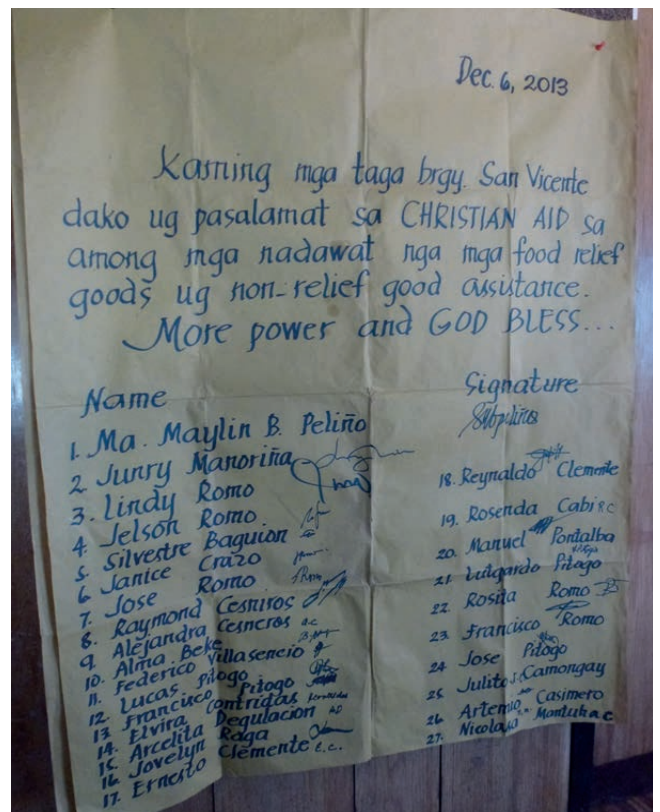 Dec. 6, 2013
Kaming mga taga brgy. San Vicente
dako ug pasalamat sa CHRISTIAN AID sa
among mga nadawat nga mga food relief
goods ug non-relief good assistance.
More power and GOD BLESS...
Name
Signature
1. Ma. Maylin B. Peliño
2. Junry Manoriña
3. Lindy Romo
4. Jelson Romo
5. Silvestre Baguion
6. Janice Crazo
7. Jose Romo
8. Raymond Cesniros
9. Alejandra Cesneros
10. Alma Beke
11. Federico Villasencio
12. Lucas Pitogo
13. Francisco Pitogo
14. Elvira Contridas
15. Arcelita Degulacion
16. Jovelyn Raga
17. Ernesto Clemente
18. Reynaldo Clemente
19. Rosenda Cabi
20. Manuel Pontalba
21. Lutgardo Pitogo
22. Rosita Romo
23. Francisco Romo
24 Jose Pitogo
25 Julito Camongay
26 Artemio Casimero
27. Nicolasa